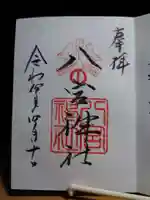 奉拝
八宮神社
令和四年四月十日